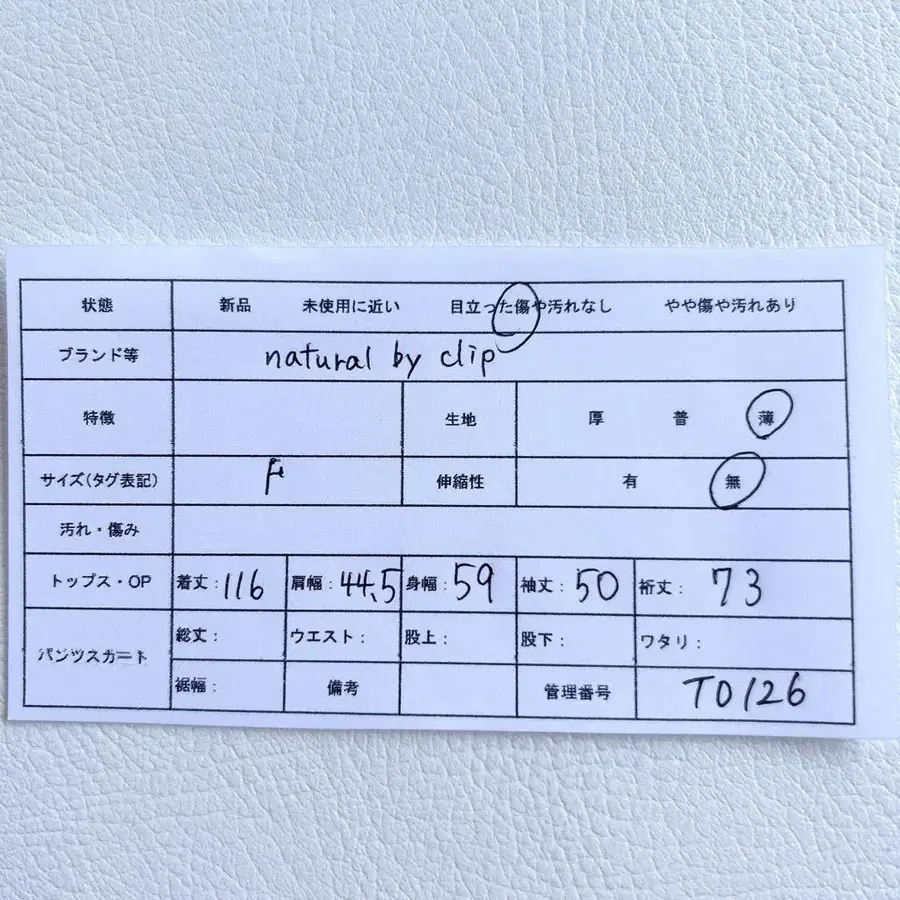 状態 新品 未使用に近い 目立った傷や汚れなし やや傷や汚れあり
ブランド等 natural by clip
特徴 生地 厚 普 薄
サイズ(タグ表記) F 伸縮性 有 無
汚れ・傷み
トップス・OP 着丈:116 肩幅:44.5 身幅:59 袖丈:50 裄丈:73
パンツスカート 総丈: ウエスト: 股上: 股下: ワタリ:
裾幅: 備考 管理番号 T0126